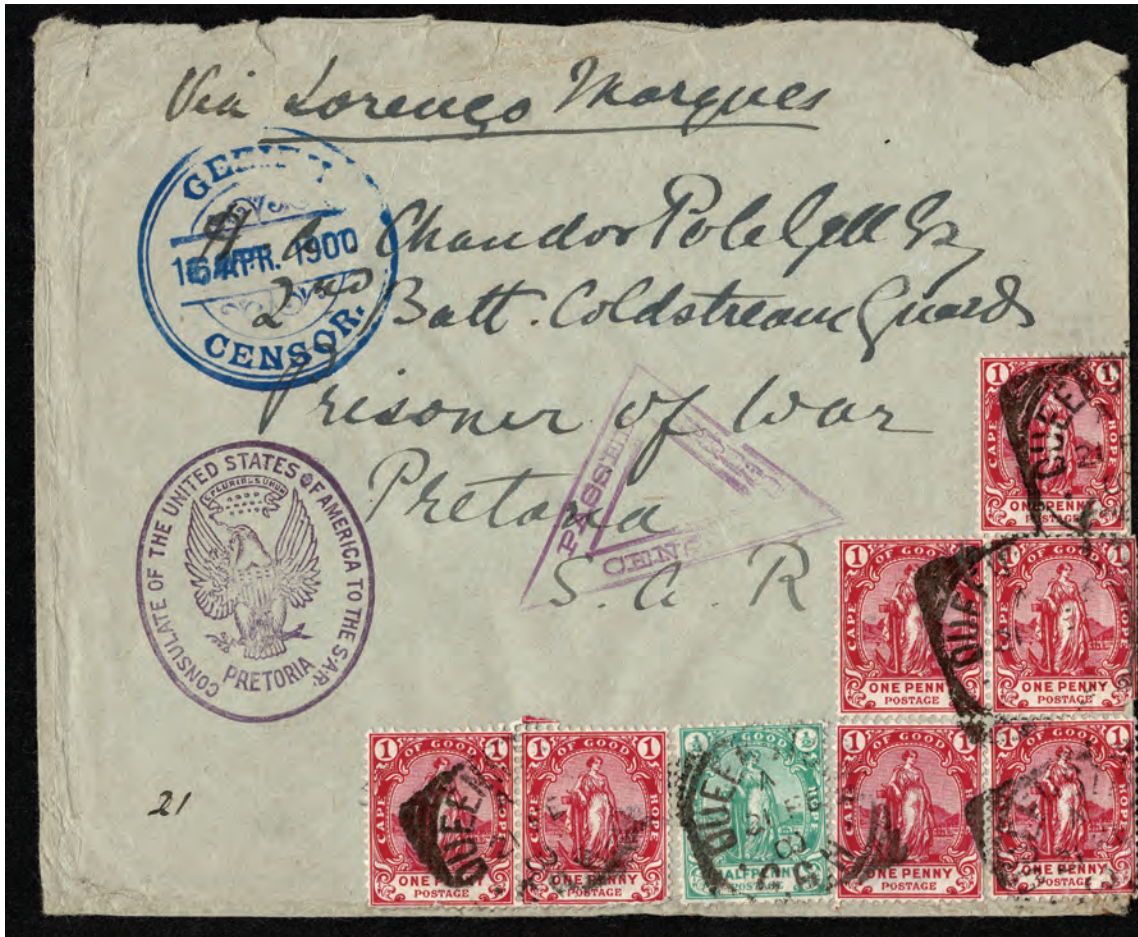 Via Lorenço Marques
CENSOR.
APR. 1900
Chandos Pole Gell Esq
2nd Batt. Coldstream Guards
Prisoner of War
Pretoria
S. A. R
PASSED
CONSULATE OF THE UNITED STATES OF AMERICA TO THE S.A.R.
E PLURIBUS UNUM
PRETORIA
21
1 1
CAPE OF GOOD HOPE
ONE PENNY
POSTAGE
1 1
CAPE OF GOOD HOPE
ONE PENNY
POSTAGE
1 1
CAPE OF GOOD HOPE
ONE PENNY
POSTAGE
1 1
CAPE OF GOOD HOPE
ONE PENNY
POSTAGE
1 1
CAPE OF GOOD HOPE
ONE PENNY
POSTAGE
½ ½
CAPE OF GOOD HOPE
HALFPENNY
POSTAGE
1 1
CAPE OF GOOD HOPE
ONE PENNY
POSTAGE
1 1
CAPE OF GOOD HOPE
ONE PENNY
POSTAGE